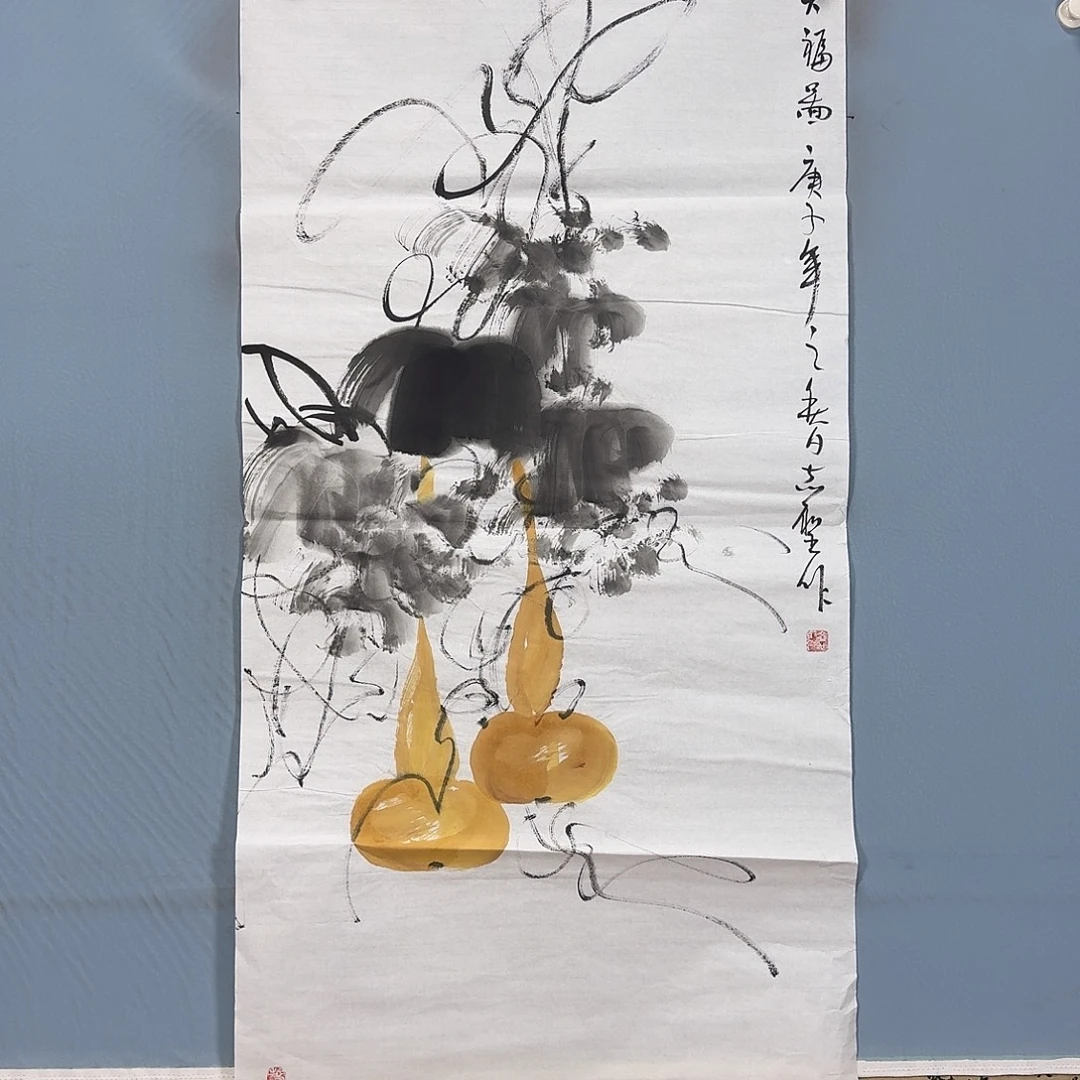 福圖 庚子年之春月志聖作